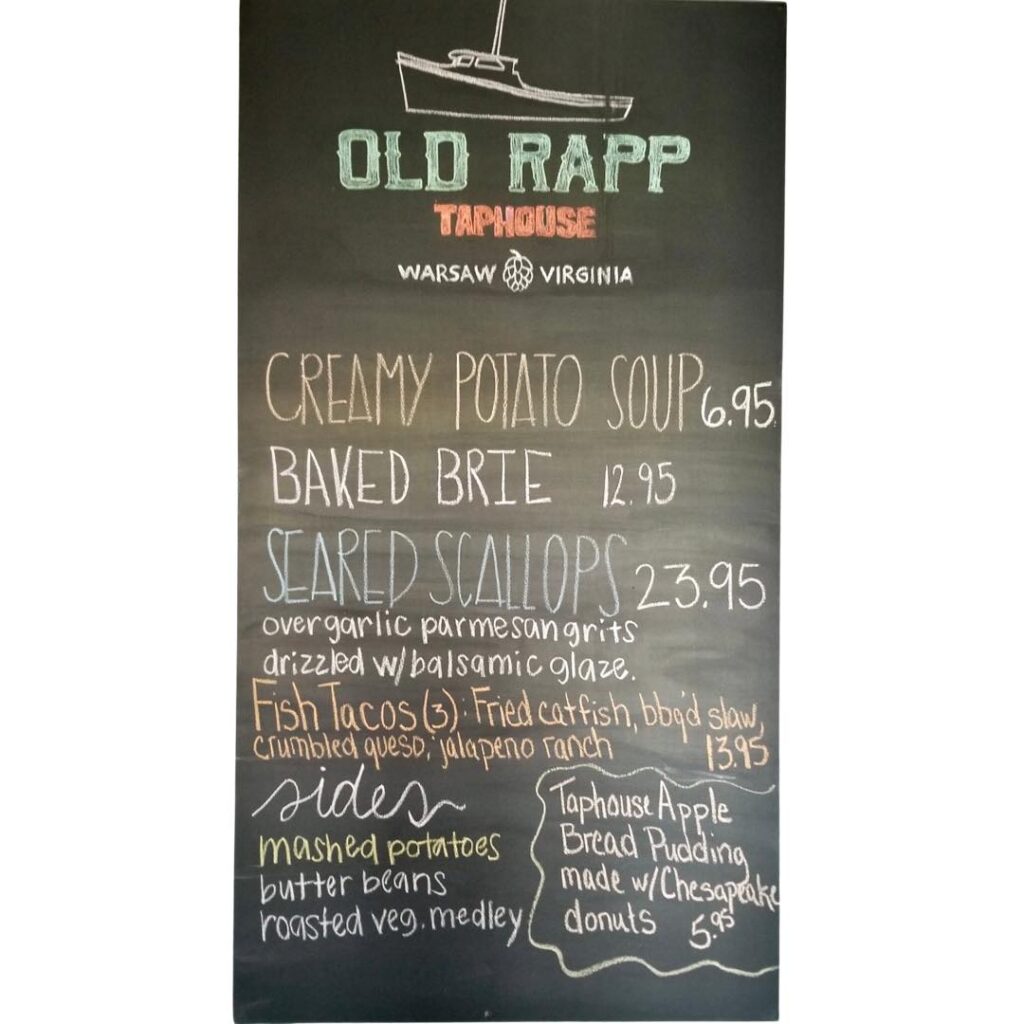 OLD RAPP
TAPHOUSE
WARSAW VIRGINIA
CREAMY POTATO SOUP 6.95
BAKED BRIE 12.95
SEARED SCALLOPS 23.95
over garlic parmesan grits
drizzled w/balsamic glaze.
Fish Tacos (3): Fried catfish, bbq'd slaw,
crumbled queso, jalapeno ranch 13.95
sides
mashed potatoes
butter beans
roasted veg. medley
Taphouse Apple
Bread Pudding
made w/Chesapeake
donuts 5.95